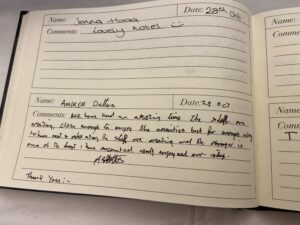 Name: Jenna Hoare Date: 28th Oct
Comments: Lovely hotel
Name: Andrea Date: 28 Oct
Comments: We have had an amazing time. The staff are
amazing, close enough to enjoy the amenities but far enough away
to have rest & relaxation. The staff are amazing and the manager is
one of the best I have encountered really enjoyed our stay.
Thank You :-
N
Co
I
Na
Co